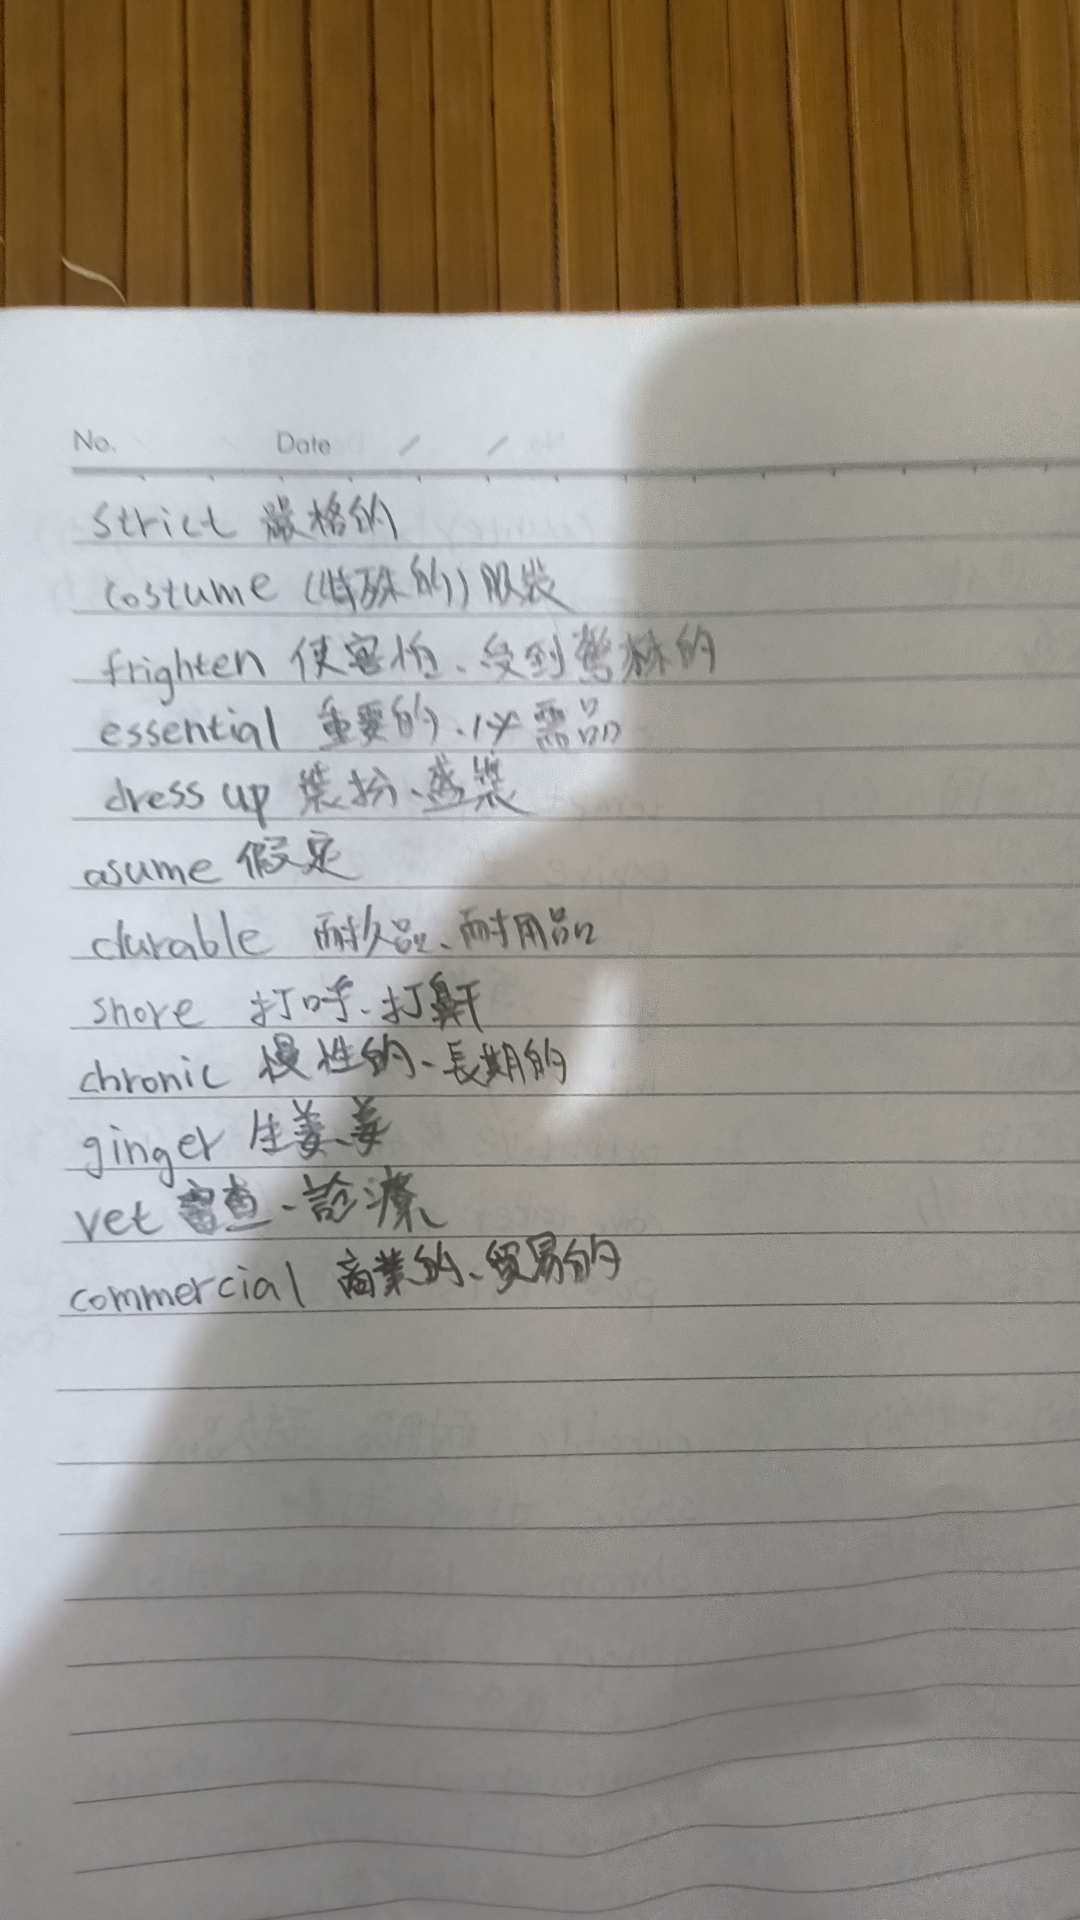 No. Date / /
strict 嚴格的
costume (特殊的)服裝
frighten 使害怕、受到驚嚇的
essential 重要的、必需品
dress up 裝扮、盛裝
asume 假定
durable 耐久品、耐用品
snore 打呼、打鼾
chronic 慢性的、長期的
ginger 生姜、姜
vet 審查、診療
commercial 商業的、貿易的